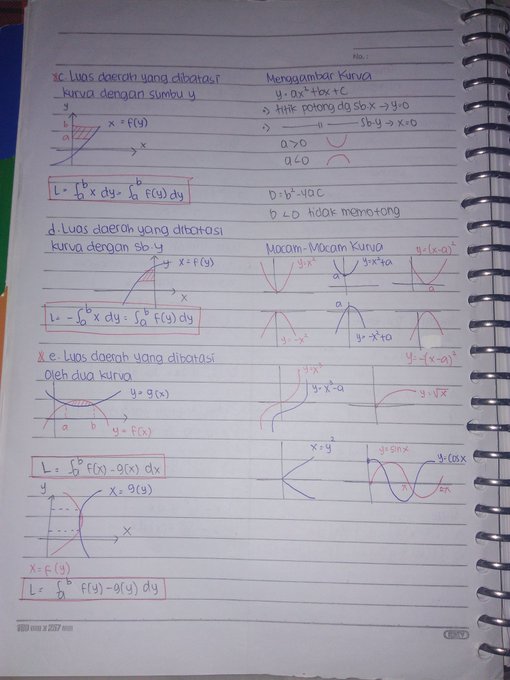 No.:
c. Luas daerah yang dibatasi
kurva dengan sumbu y
y
b
a
x = f(y)
x
L = ∫ₐᵇ x dy = ∫ₐᵇ f(y) dy
d. Luas daerah yang dibatasi
kurva dengan sb.y
y
x = f(y)
x
L = -∫ₐᵇ x dy = ∫ₐᵇ f(y) dy
e. Luas daerah yang dibatasi
oleh dua kurva
y = g(x)
a b
y = f(x)
L = ∫ₐᵇ f(x) - g(x) dx
y
x = g(y)
x
x = f(y)
L = ∫ₐᵇ f(y) - g(y) dy
Menggambar Kurva
y = ax² + bx + c
titik potong dg sb.x → y=0
—— 〃 —— sb.y → x=0
a>0
a<0
D = b² - 4ac
D <0 tidak memotong
Macam-Macam Kurva
y = x²
y = x² + a
a
y = (x-a)²
a
y = -x²
a
y = -x² + a
y = -(x-a)²
y = x³
y = x³ - a
y = √x
x = y²
y = sin x
y = cos x
π
2π